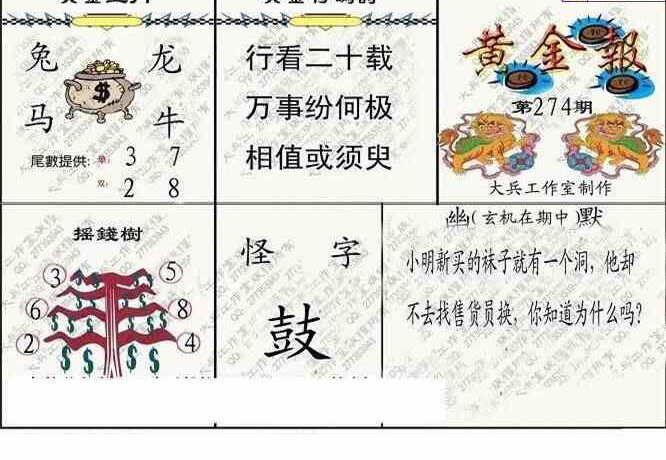 兔 龙
马 牛
$
尾數提供: 单: 3 7
双: 2 8
行看二十载
万事纷何极
相值或须臾
黄金報
第274期
大兵工作室制作
摇錢樹
3 5
6 8
2 4
怪 字
鼓
幽(玄机在期中)默
小明新买的袜子就有一个洞，他却
不去找售货员换，你知道为什么吗？